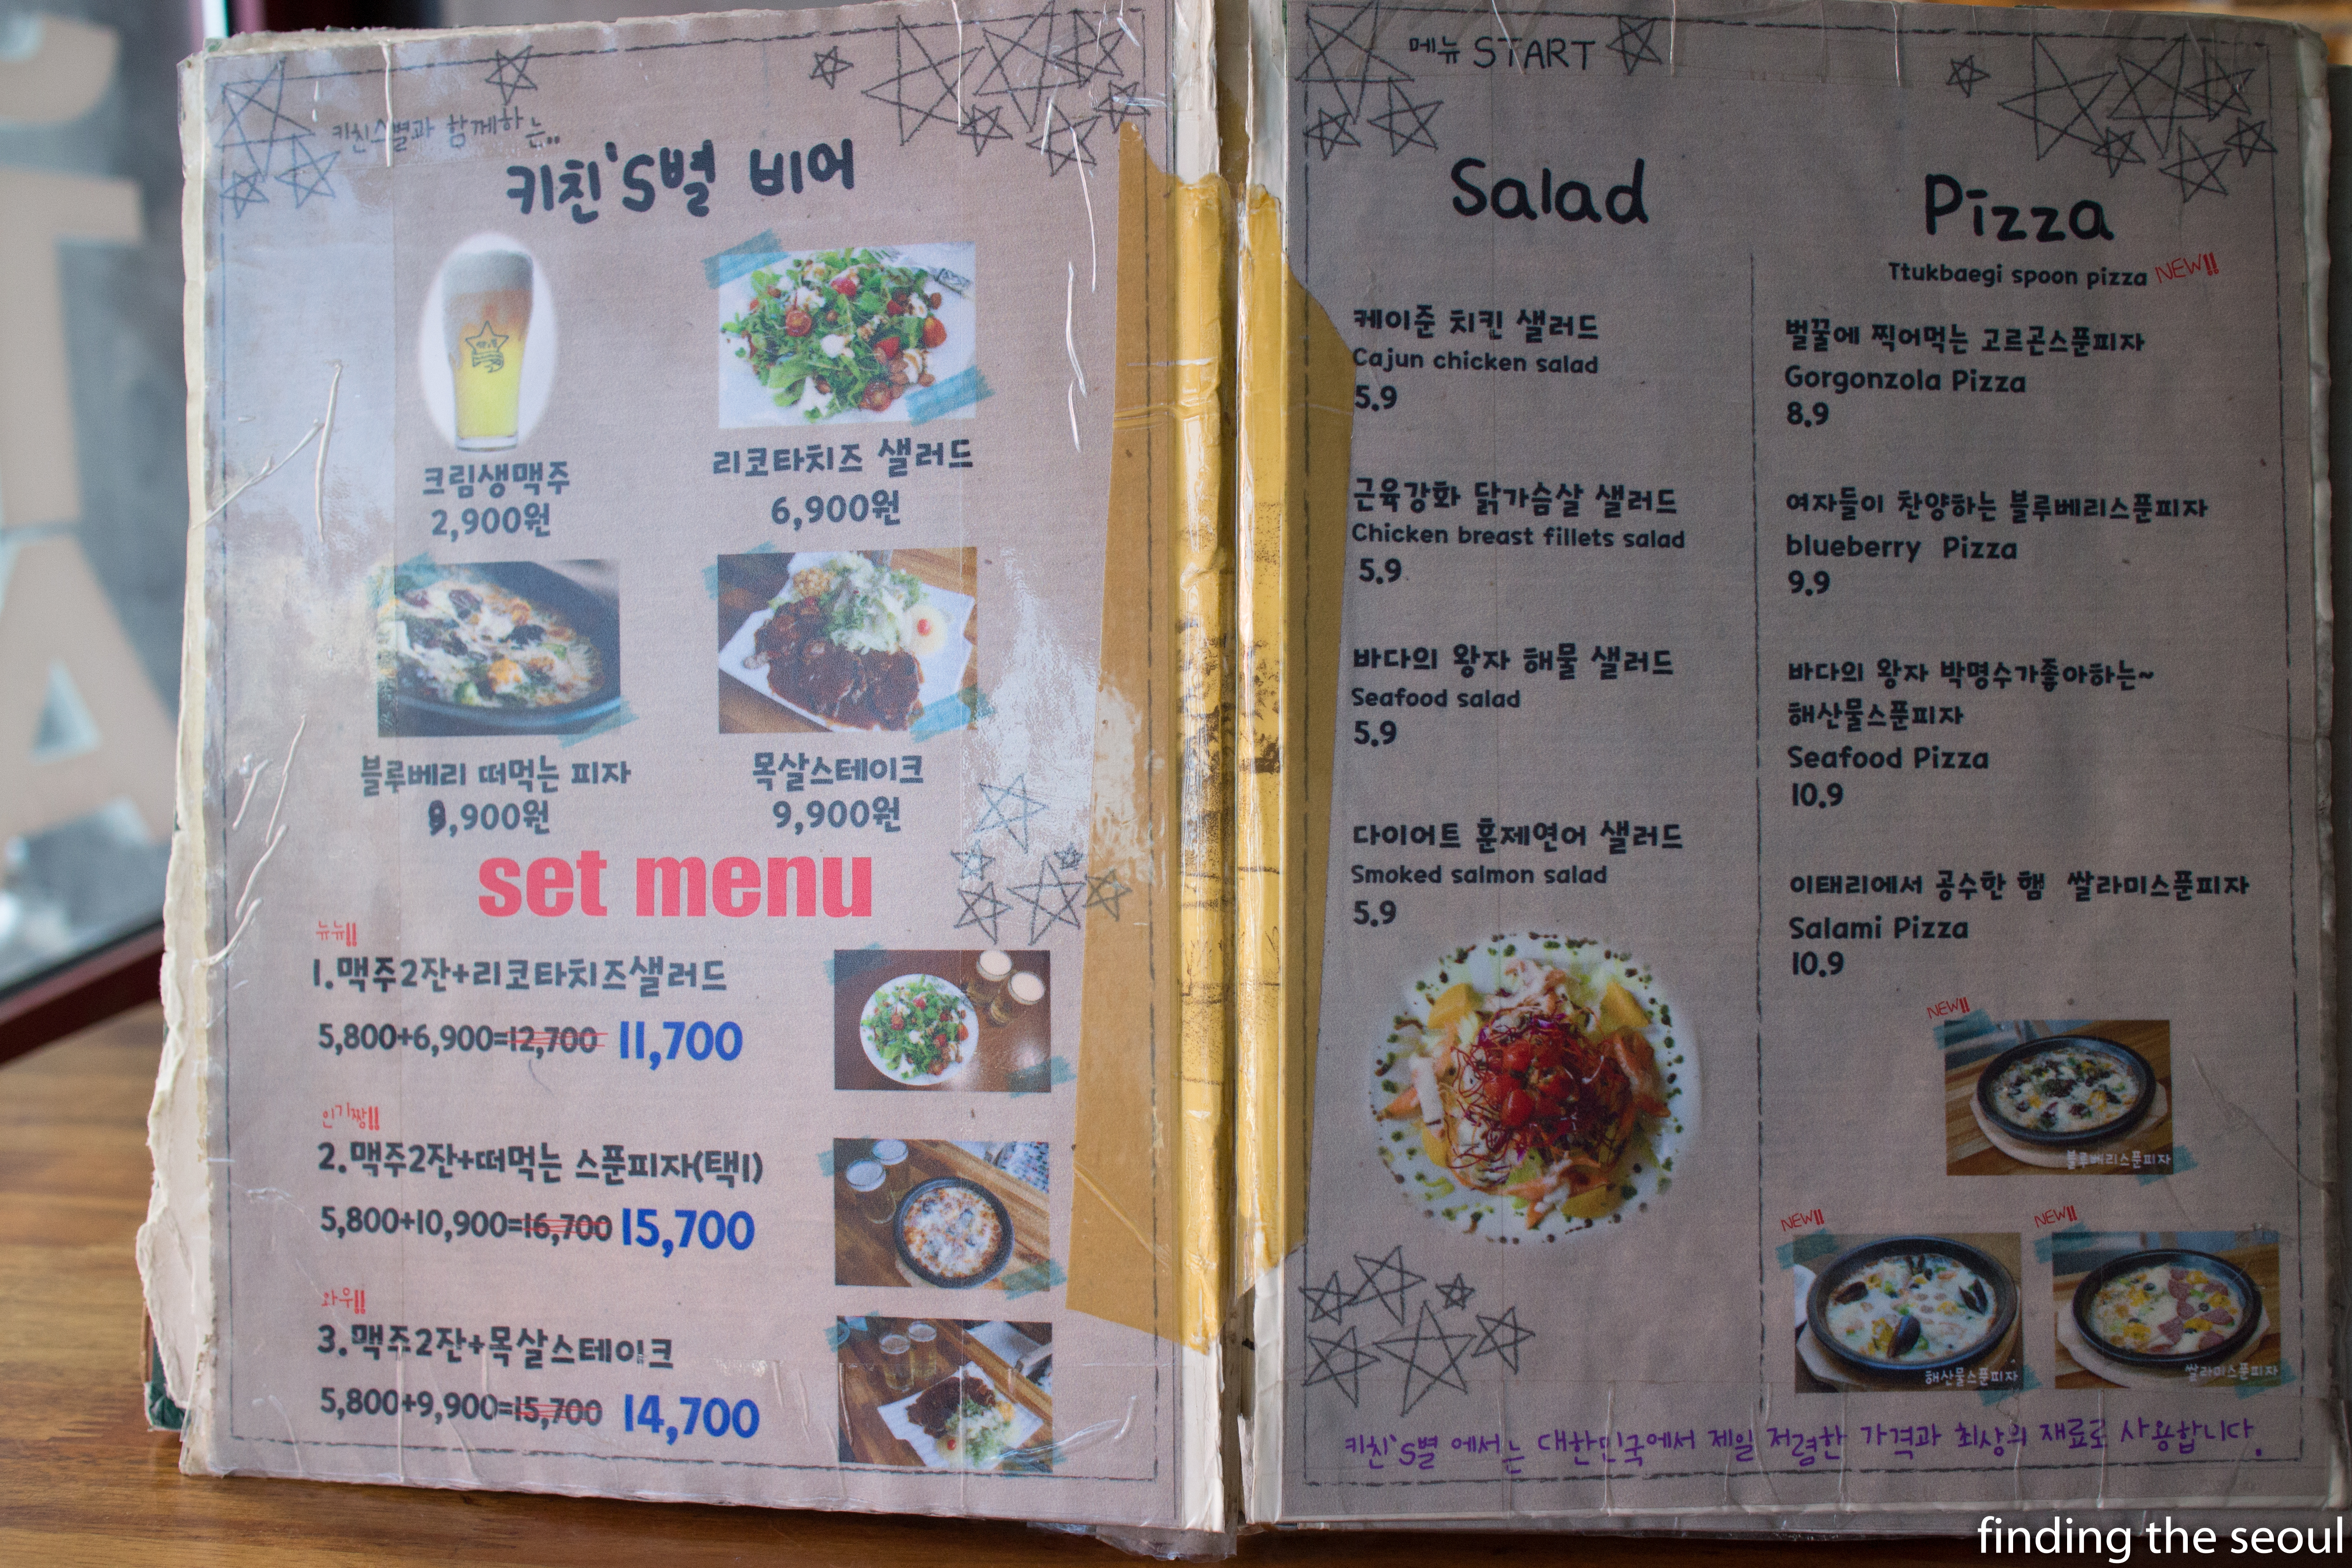 키친스별과 함께하는..
키친'S별 비어
크림생맥주
2,900원
리코타치즈 샐러드
6,900원
블루베리 떠먹는 피자
9,900원
목살스테이크
9,900원
set menu
뉴뉴!!
1.맥주2잔+리코타치즈샐러드
5,800+6,900=12,700 11,700
인기짱!!
2.맥주2잔+떠먹는 스푼피자(택1)
5,800+10,900=16,700 15,700
와우!!
3.맥주2잔+목살스테이크
5,800+9,900=15,700 14,700
메뉴 START
Salad
케이준 치킨 샐러드
Cajun chicken salad
5.9
근육강화 닭가슴살 샐러드
Chicken breast fillets salad
5.9
바다의 왕자 해물 샐러드
Seafood salad
5.9
다이어트 훈제연어 샐러드
Smoked salmon salad
5.9
Pizza
Ttukbaegi spoon pizza NEW!!
벌꿀에 찍어먹는 고르곤스푼피자
Gorgonzola Pizza
8.9
여자들이 찬양하는 블루베리스푼피자
blueberry Pizza
9.9
바다의 왕자 박명수가좋아하는~
해산물스푼피자
Seafood Pizza
10.9
이태리에서 공수한 햄 쌀라미스푼피자
Salami Pizza
10.9
NEW!!
블루베리스푼피자
NEW!!
해산물스푼피자
NEW!!
쌀라미스푼피자
키친'S별 에서는 대한민국에서 제일 저렴한 가격과 최상의 재료로 사용합니다.
finding the seoul